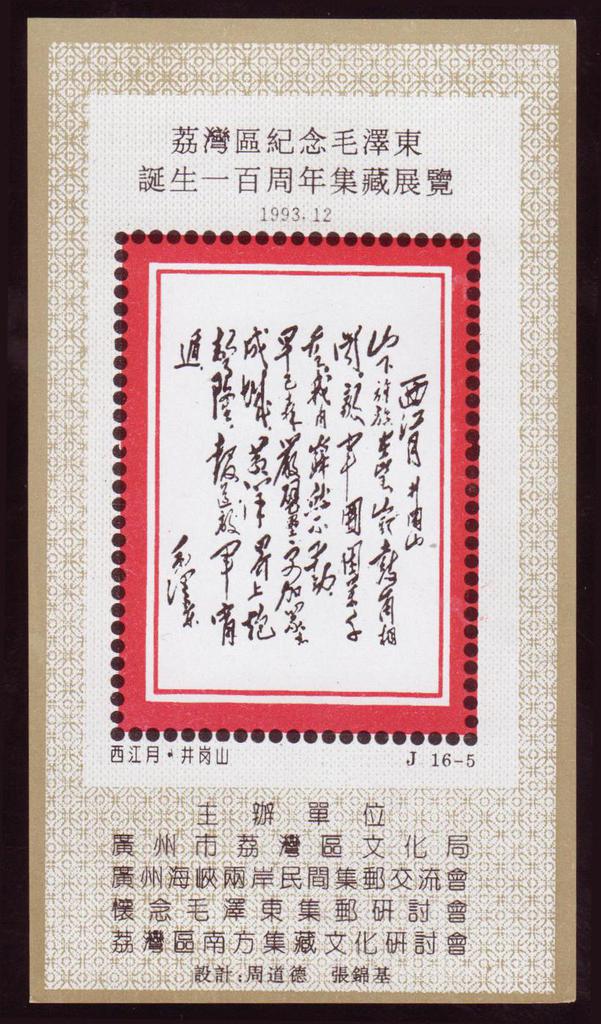 荔灣區紀念毛澤東
誕生一百周年集藏展覽
1993.12
西江月 井岡山
山下旌旗在望山頭鼓角相
聞。敵軍圍困萬千
重我自巋然不動
早已森嚴壁壘更加衆志
成城黃洋界上炮
聲隆報道敵軍宵
遁
毛澤東
西江月·井岗山
J 16-5
主辦單位
廣州市荔灣區文化局
廣州海峽兩岸民間集郵交流會
懷念毛澤東集郵研討會
荔灣區南方集藏文化研討會
設計:周道德 張錦基